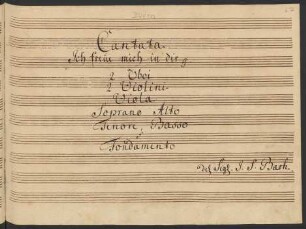 Cantata.
Ich freüe mich in dir.
2 Oboi
2 Violini
Viola
Soprano Alto
Tenore, Basso
e
Fondamento
Del Sigl. J. S. Bach.